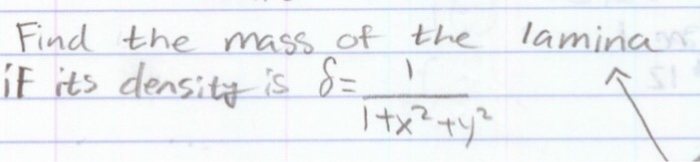 Find the mass of the lamina
if its density is δ= 1/1+x²+y²